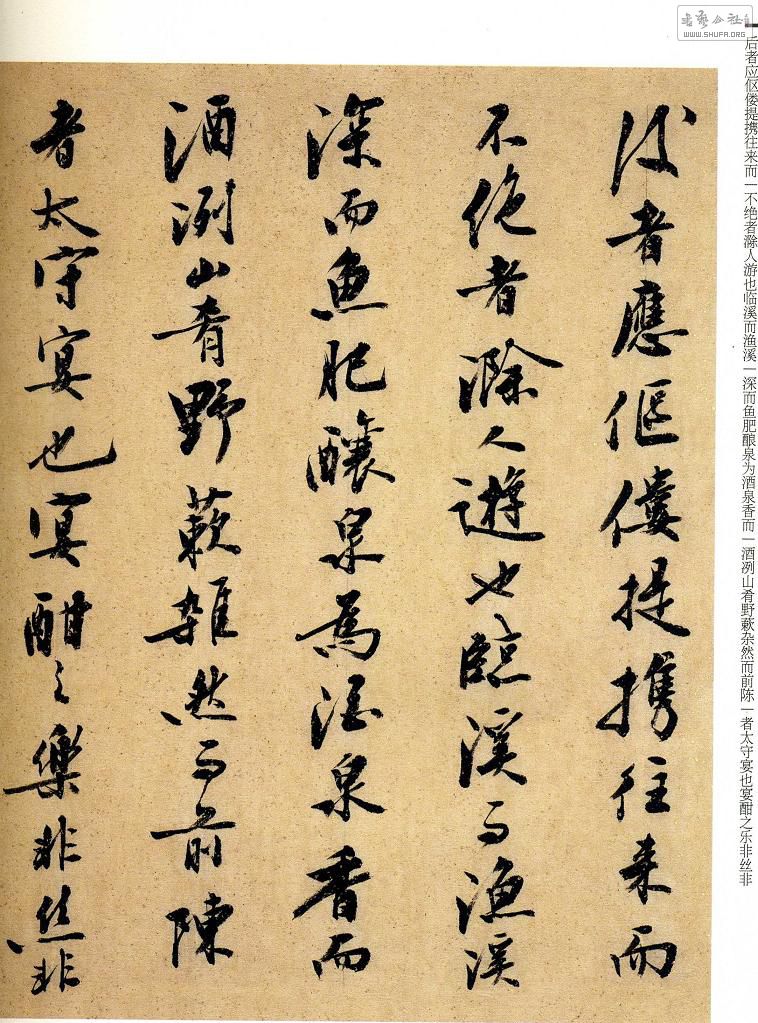 後者應傴僂提攜往来而
不絶者滁人遊也臨溪而漁溪
深而魚肥釀泉為酒泉香而
酒洌山肴野蔌雜然而前陳
者太守宴也宴酣之樂非丝非
后者应伛偻提携往来而一不绝者滁人游也临溪而渔溪一深而鱼肥酿泉为酒泉香而一酒洌山肴野蔌杂然而前陈一者太守宴也宴酣之乐非丝非
书艺公社
WWW.SHUFA.ORG